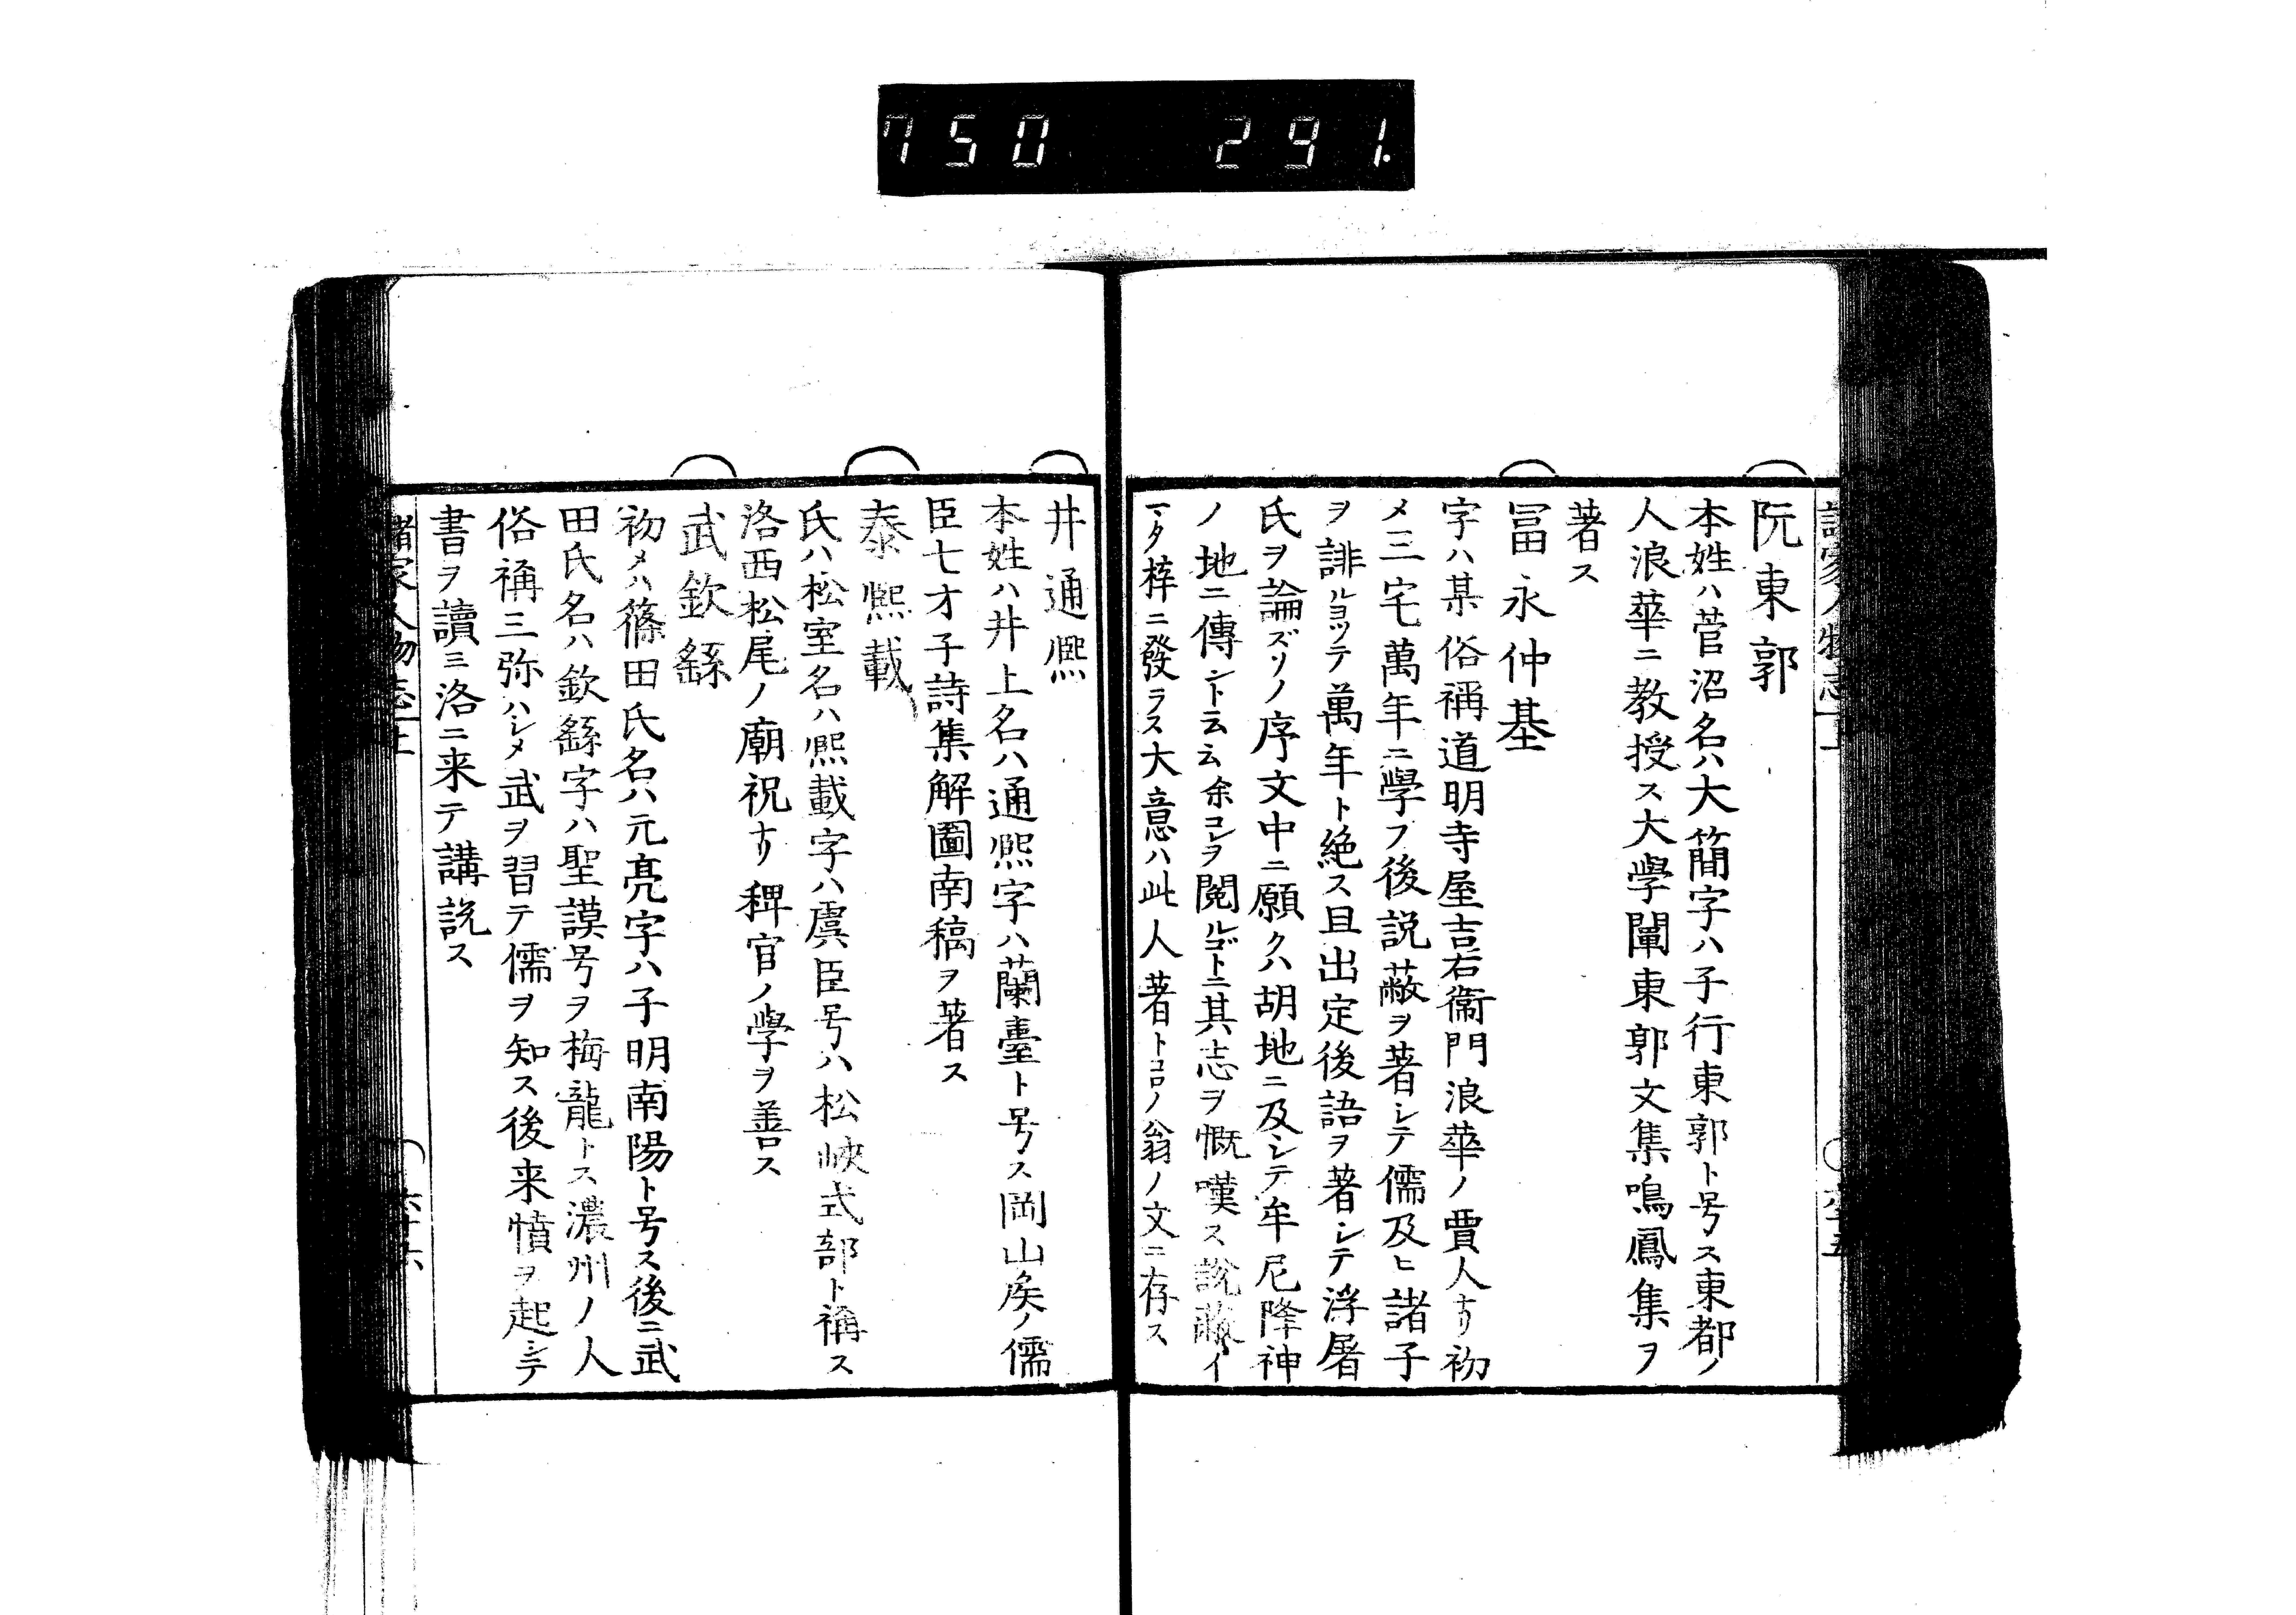 750 291.
阮東郭
本姓ハ菅沼名ハ大簡字ハ子行東郭ト号ス東都ノ
人浪華ニ教授ス大學闡東郭文集鳴鳳集ヲ
著ス
冨永仲基
字ハ某俗稱道明寺屋吉右衞門浪華ノ賈人ナリ初
メ三宅萬年ニ學フ後説蔽ヲ著シテ儒及ヒ諸子
ヲ誹ルヨツテ萬年ト絶ス且出定後語ヲ著シテ浮屠
氏ヲ論ズソノ序文中ニ願クハ胡地ニ及シテ牟尼降神
ノ地ニ傳ント云云余コレヲ閲ルゴトニ其志ヲ慨嘆ス説蔽イ
マタ梓ニ發ラス大意ハ此人著トコロノ翁ノ文ニ存ス
井通熙
本姓ハ井上名ハ通熙字ハ蘭臺ト号ス岡山矦ノ儒
臣七才子詩集解圖南稿ヲ著ス
泰熙載
氏ハ松室名ハ熙載字ハ虞臣号ハ松峽式部ト稱ス
洛西松尾ノ廟祝ナリ稗官ノ學ヲ善ス
武欽繇
初メハ篠田氏名ハ元亮字ハ子明南陽ト号ス後ニ武
田氏名ハ欽繇字ハ聖謨号ヲ梅龍トス濃州ノ人
俗稱三弥ハシメ武ヲ習テ儒ヲ知ス後来憤ヲ起シテ
書ヲ讀ミ洛ニ来テ講説ス
諸家人物志上 六十六